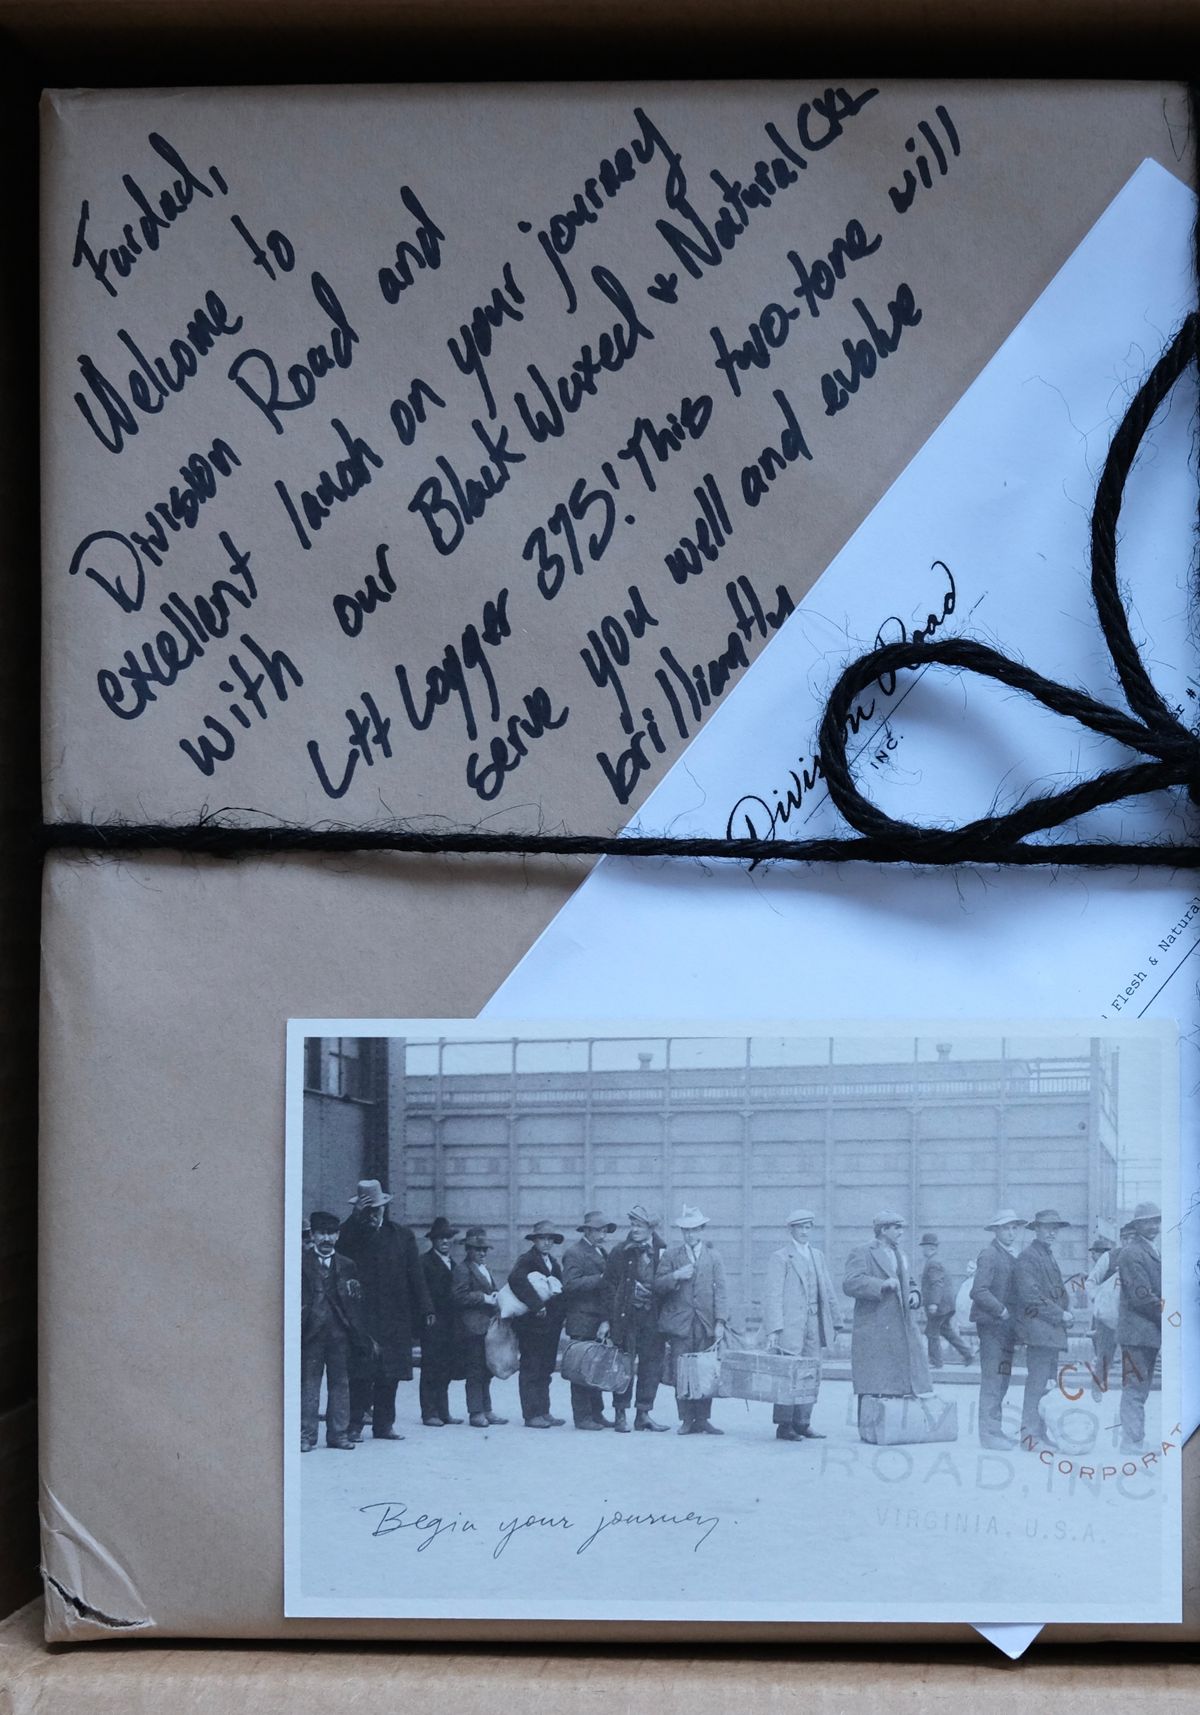 Welcome to
Division Road and
excellent laugh on your journey
with our Black Waxed & Natural CXL
LHF Logger 375! This two-tone will
serve you well and evolve
brilliantly
Division Road
INC.
Flesh & Natural
Begin your journey.
DIVISION ROAD
CVA
INCORPORAT
DIVISION
ROAD, INC.
VIRGINIA, U.S.A.